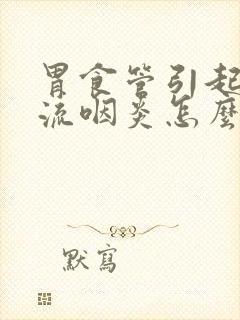 胃食管引起
流咽炎怎麼
默寫